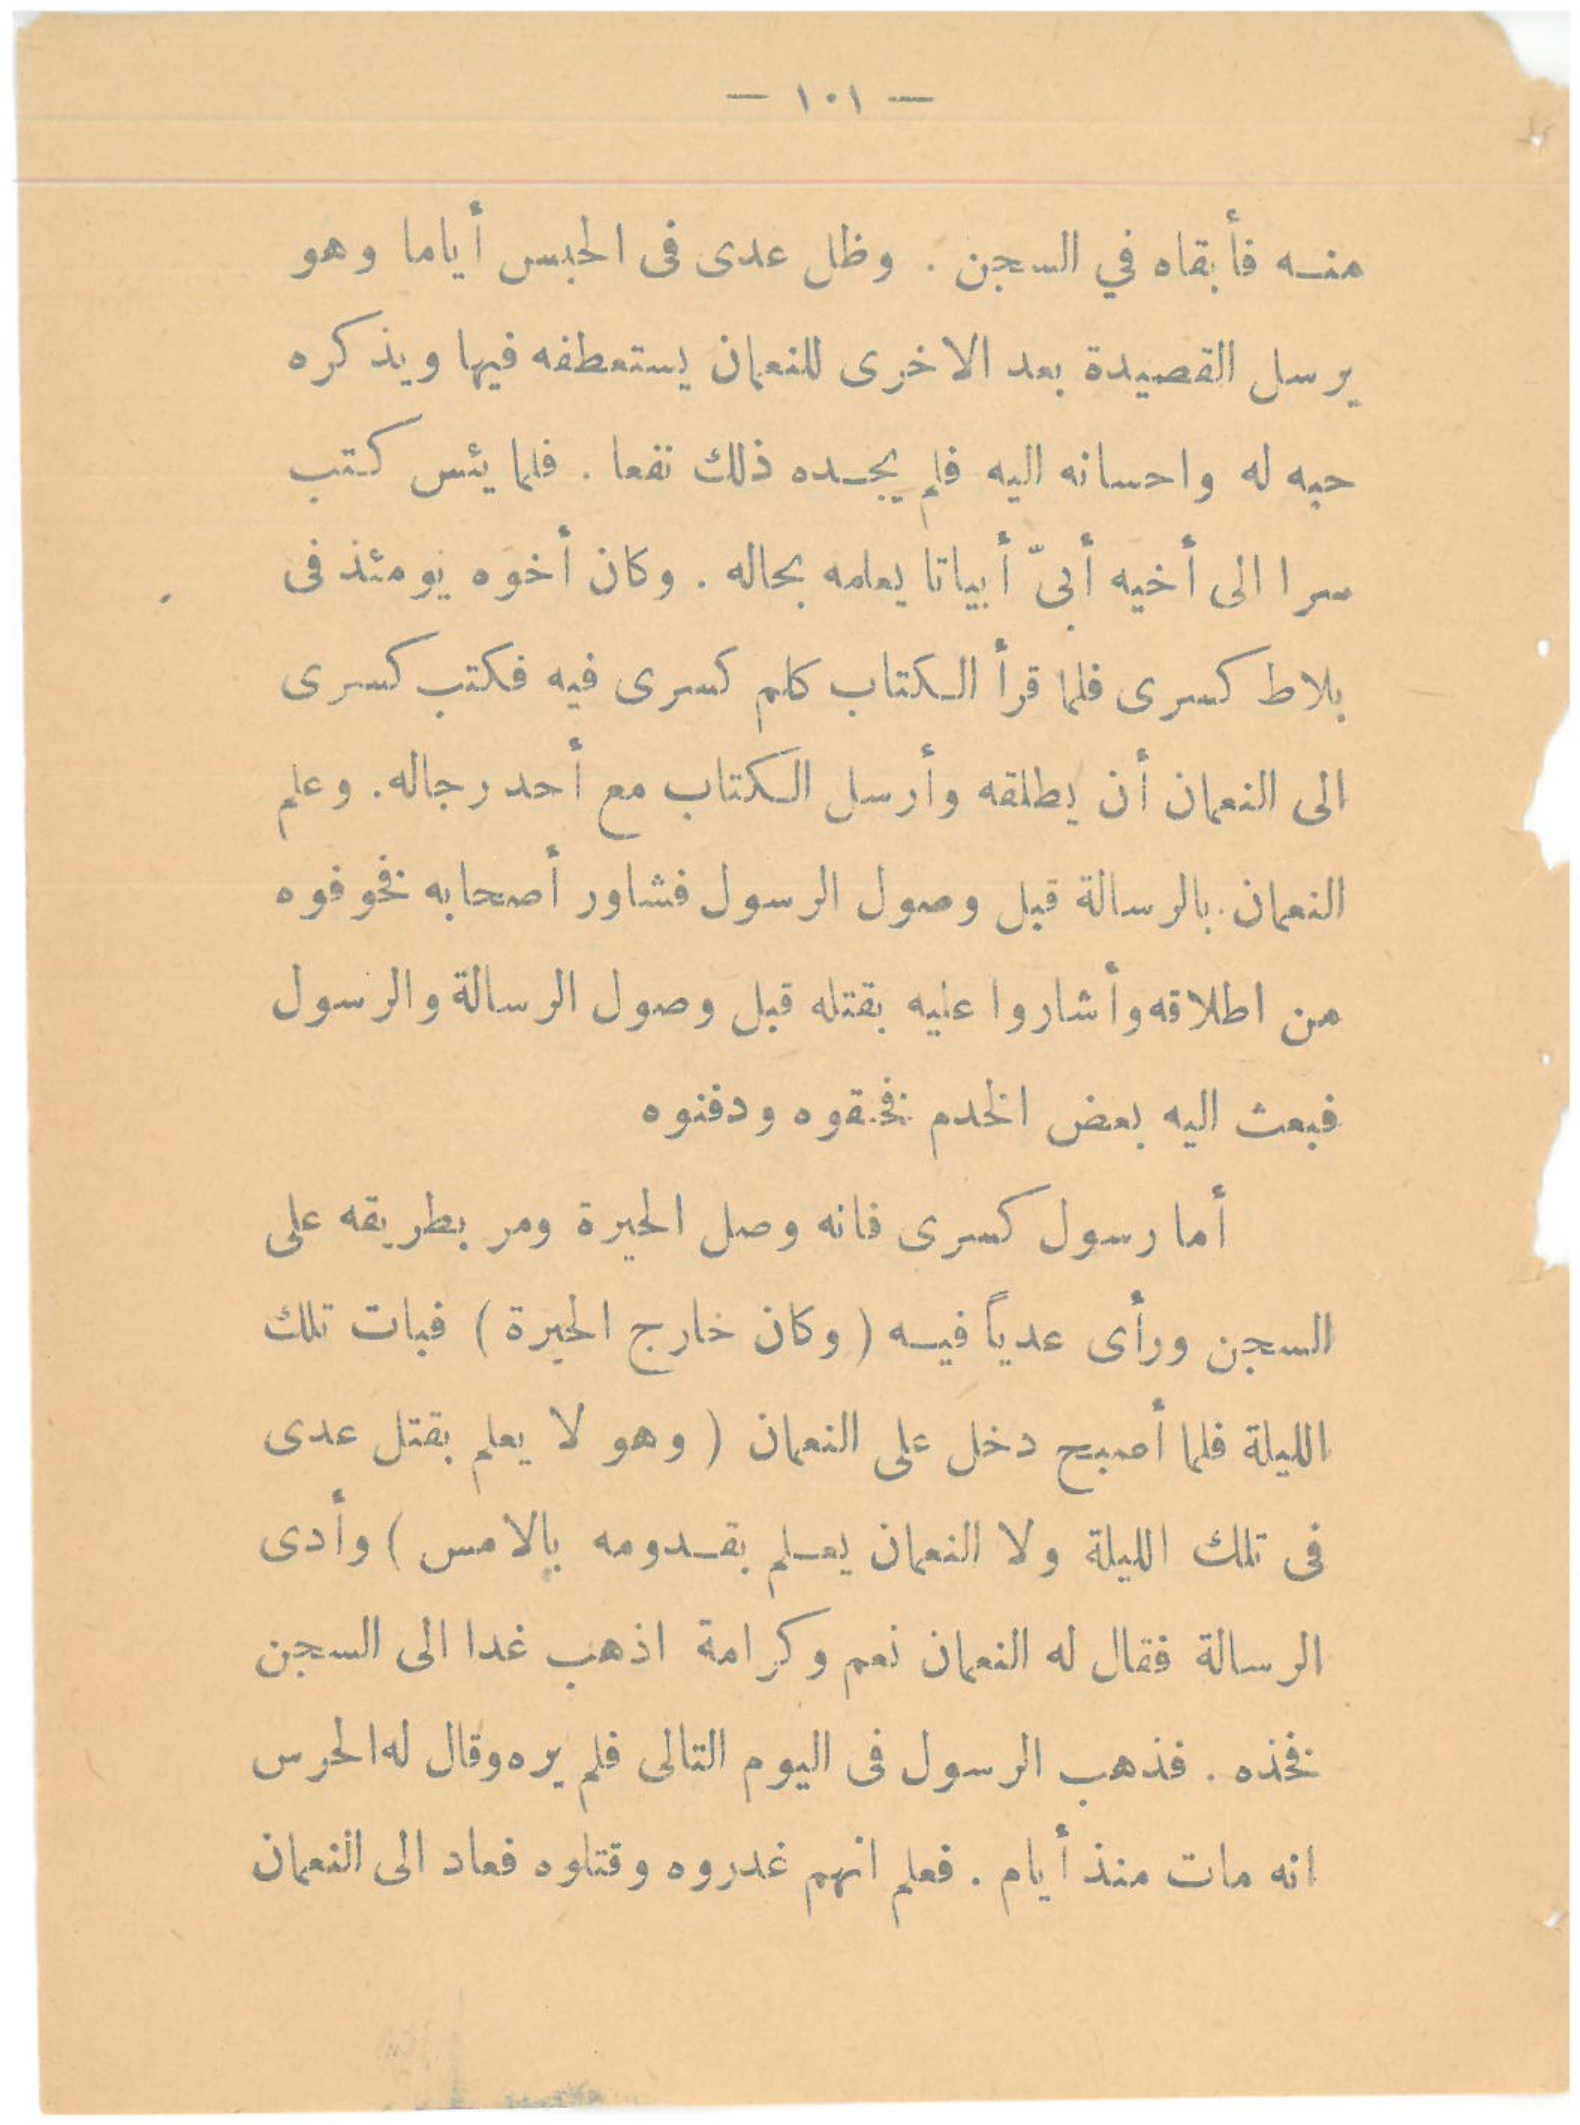 — ١٠١ —
منه فأبقاه في السجن . وظل عدى فى الحبس أياما وهو
يرسل القصيدة بعد الاخرى للنعمان يستعطفه فيها ويذكره
حبه له واحسانه اليه فلم يجده ذلك نفعا . فلما يئس كتب
سرا الى أخيه أبىّ أبياتا يعلمه بحاله . وكان أخوه يومئذ فى
بلاط كسرى فلما قرأ الكتاب كلم كسرى فيه فكتب كسرى
الى النعمان أن يطلقه وأرسل الكتاب مع أحد رجاله . وعلم
النعمان بالرسالة قبل وصول الرسول فشاور أصحابه فخوفوه
من اطلاقه وأشاروا عليه بقتله قبل وصول الرسالة والرسول
فبعث اليه بعض الخدم فخنقوه ودفنوه
أما رسول كسرى فانه وصل الحيرة ومر بطريقه على
السجن ورأى عدياً فيه ( وكان خارج الحيرة ) فبات تلك
الليلة فلما أصبح دخل على النعمان ( وهو لا يعلم بقتل عدى
فى تلك الليلة ولا النعمان يعلم بقدومه بالامس ) وأدى
الرسالة فقال له النعمان نعم وكرامة اذهب غدا الى السجن
فخذه . فذهب الرسول فى اليوم التالى فلم يره وقال له الحرس
انه مات منذ أيام . فعلم انهم غدروه وقتلوه فعاد الى النعمان